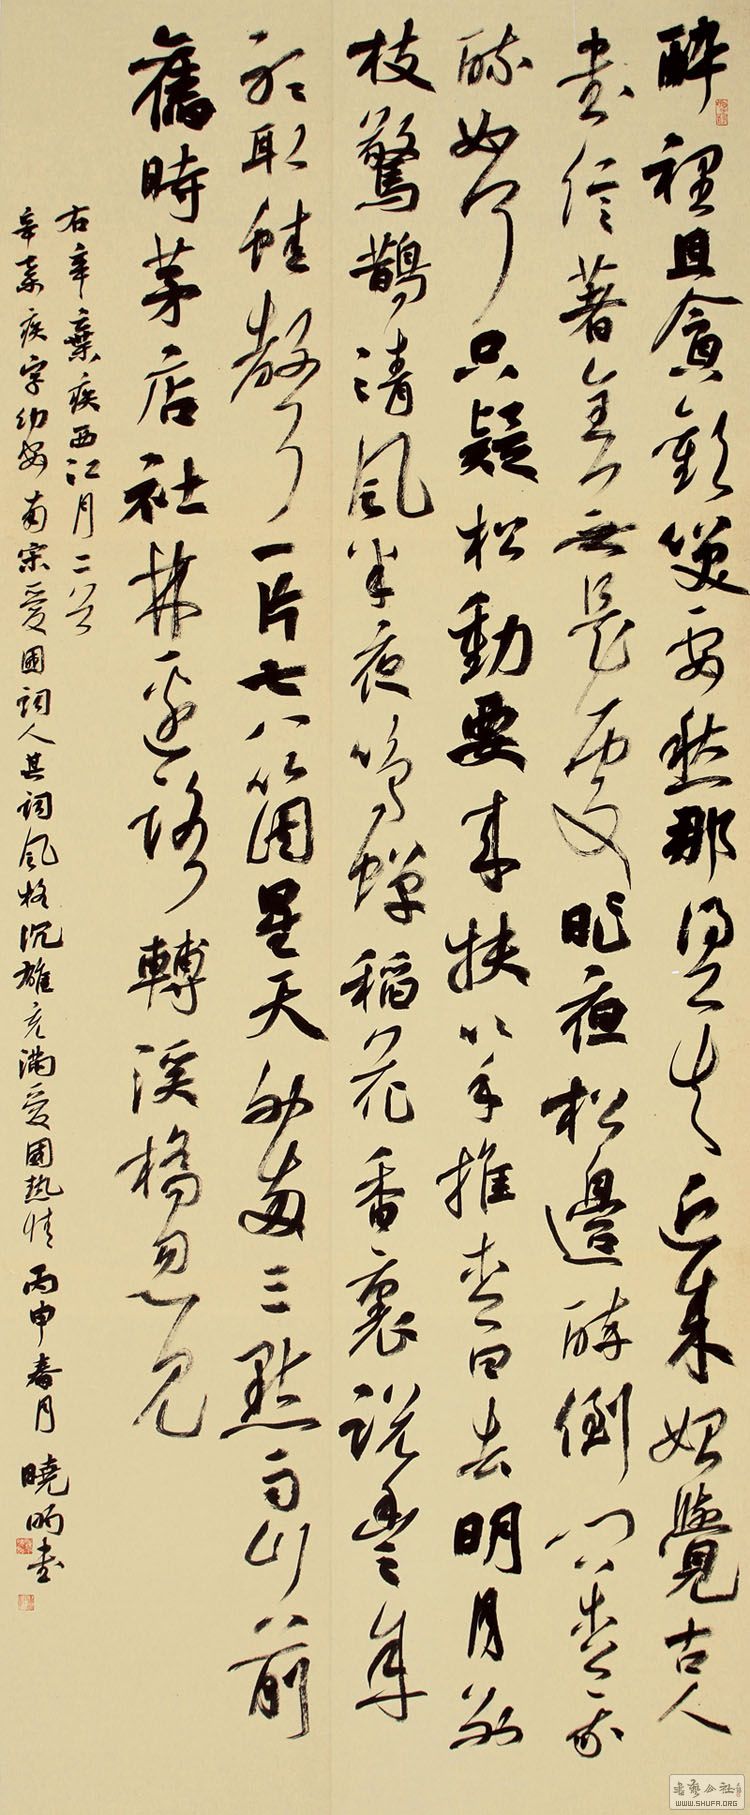 醉裡且貪歡笑要愁那得工夫近來始覺古人
書信著全無是處昨夜松邊醉倒問松我
醉如何只疑松動要來扶以手推松曰去明月別
枝驚鵲清風半夜鳴蟬稻花香裏說豐年
聽取蛙聲一片七八箇星天外兩三點雨山前
舊時茅店社林邊路轉溪橋忽見
右辛棄疾西江月二首
辛棄疾字幼安南宋愛國詞人其詞風格沉雄充滿愛國熱情丙申春月曉昞書
書藝公社
WWW.SHUFA.ORG